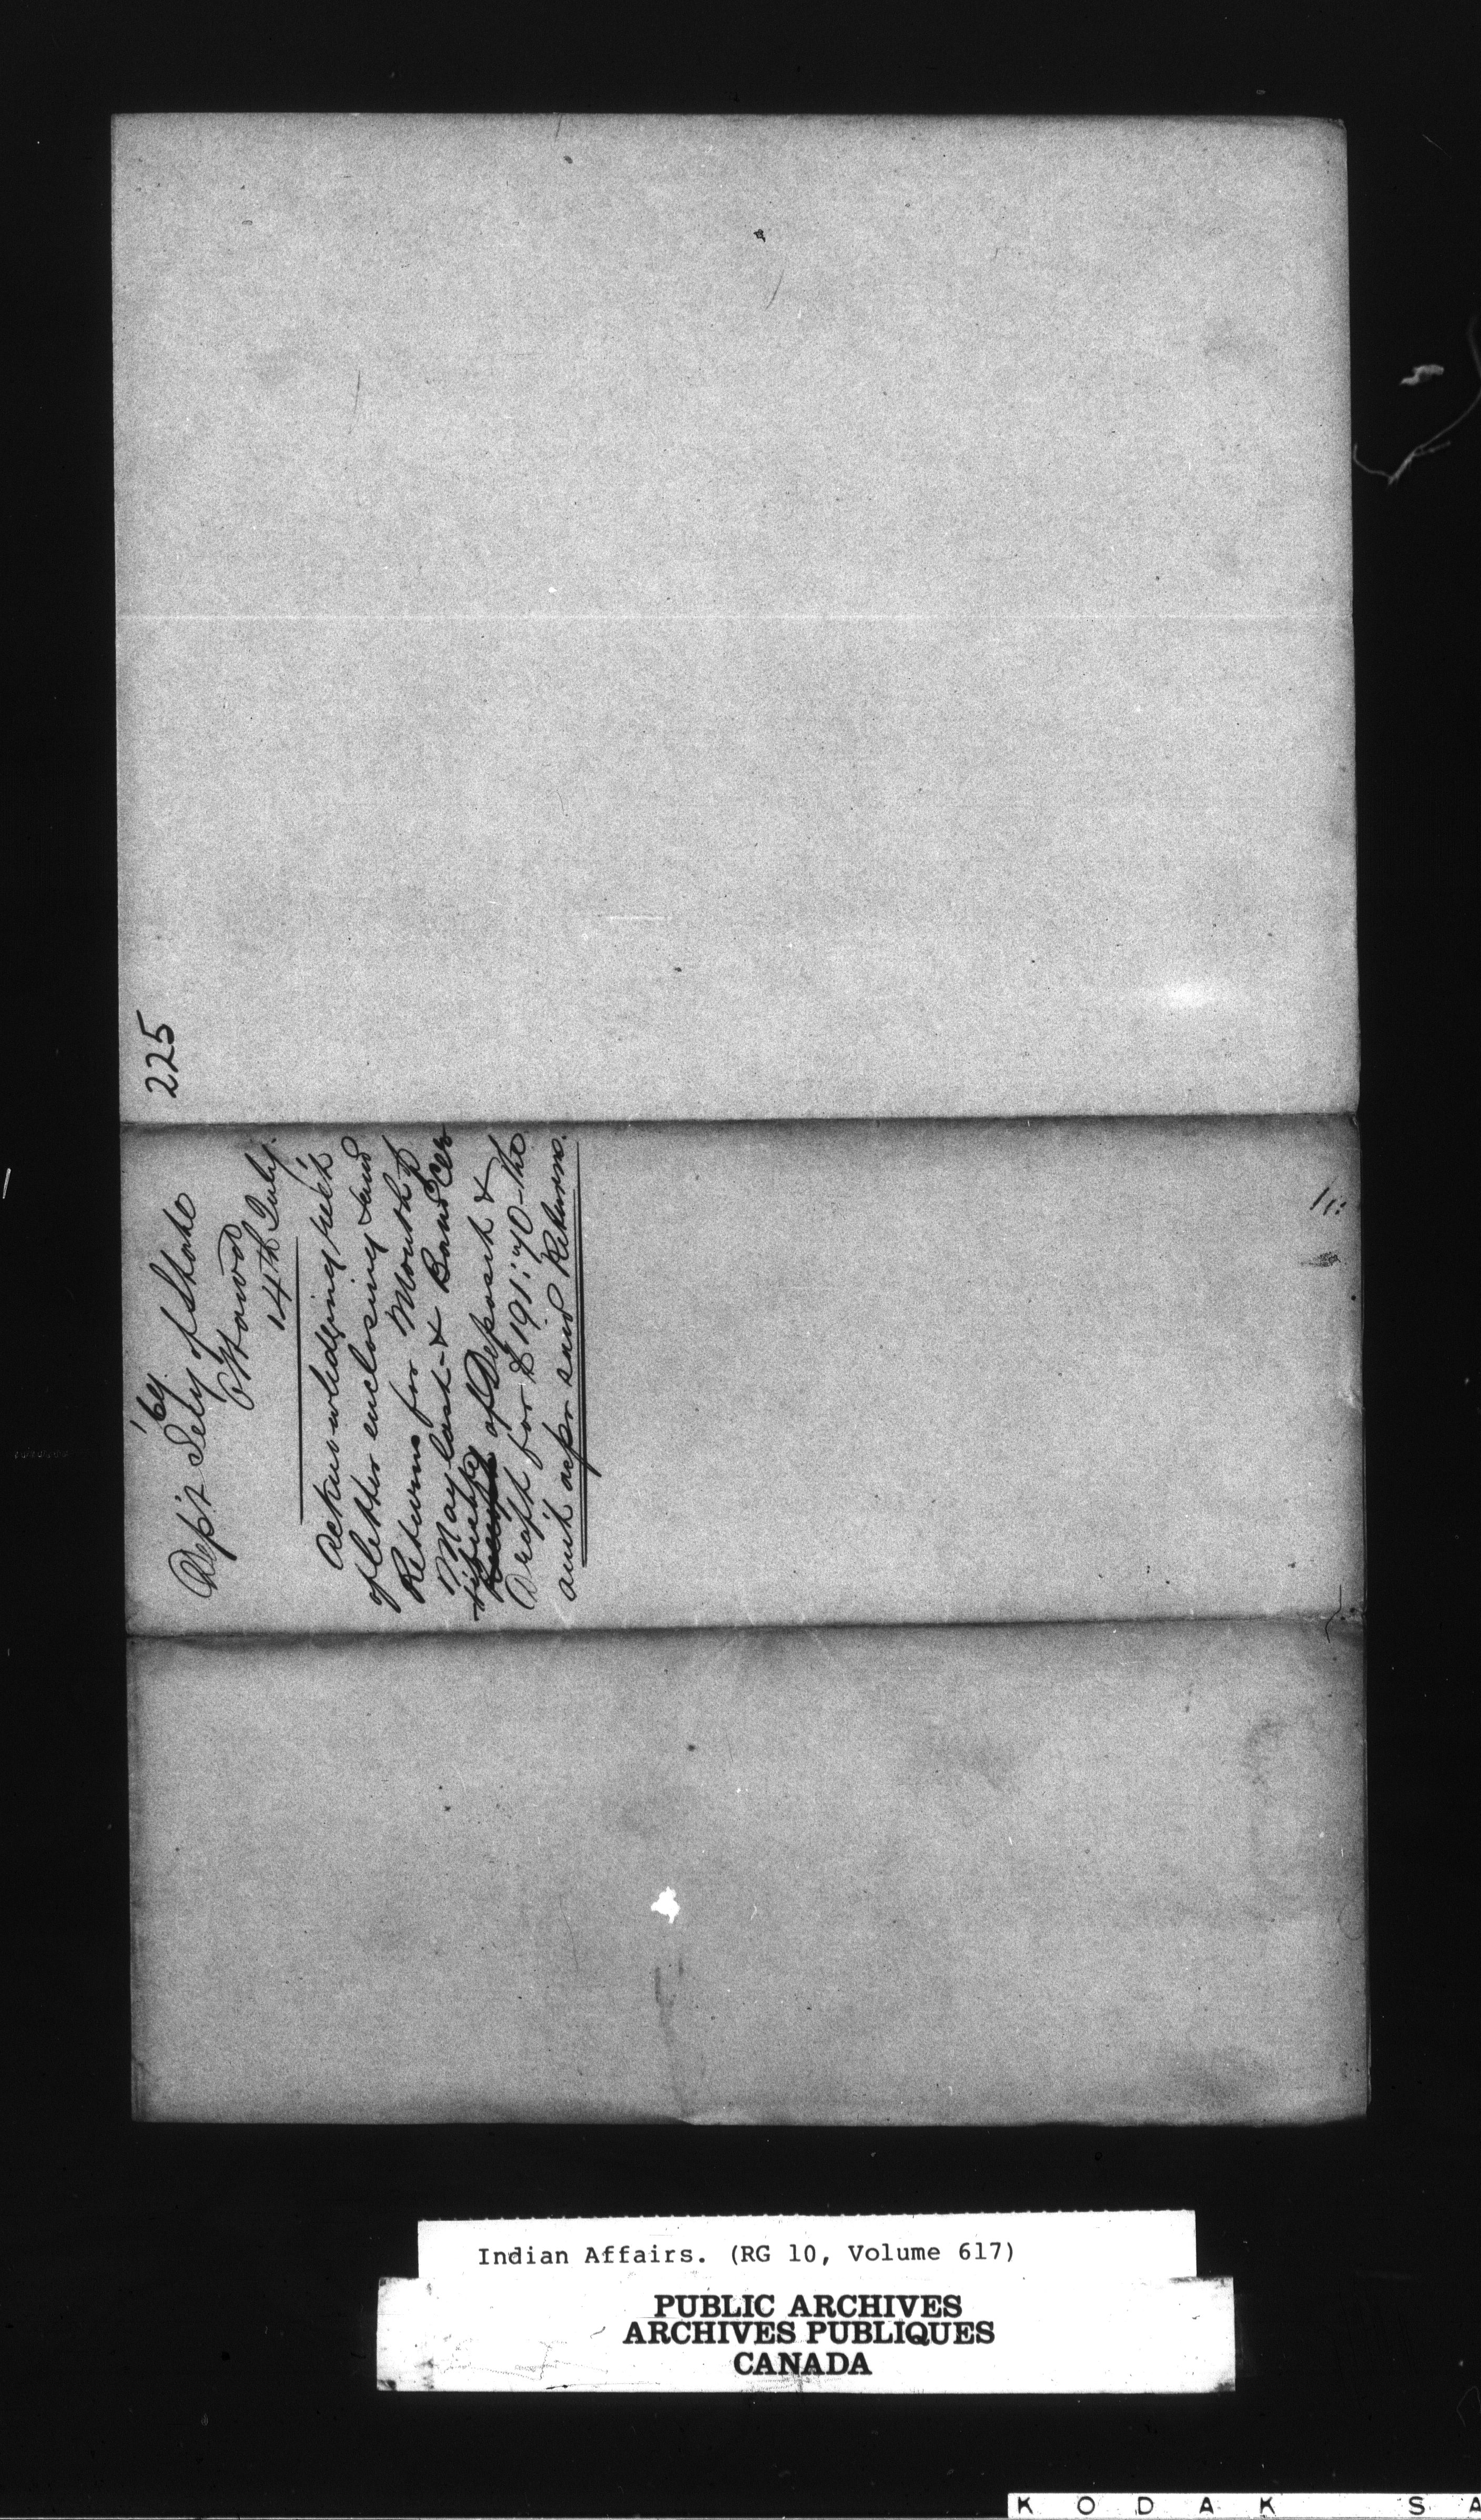 225
'69
Dep't Sec'y of State
Ottawa
14th July.
Acknowledging rec't
of letter enclosing Land
Returns for Month of
May last & Bank Cer
tificate of Deposit &
Draft for $191.70 the
am't as pr said Returns.
Indian Affairs. (RG 10, Volume 617)
PUBLIC ARCHIVES
ARCHIVES PUBLIQUES
CANADA
K O D A K S A